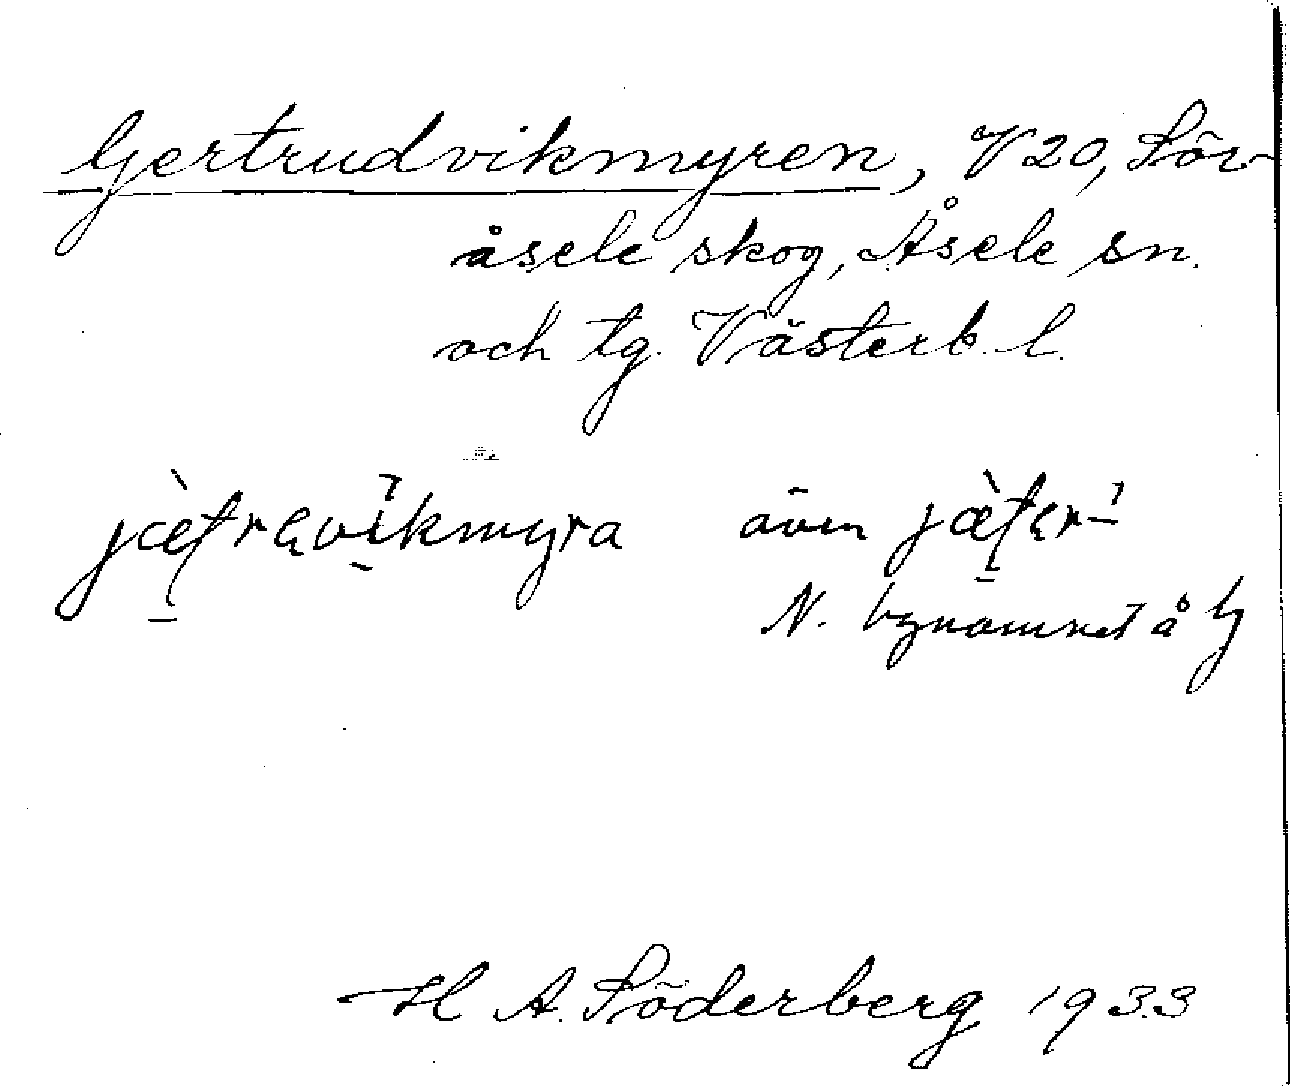 Gertrudvikmyren, V 20, Söv-
åsele skog, Åsele sn.
och tg. Västerb. l.
jæ̀trəvikmyra även jæ̀tər-
N. bynamnet å G
H A. Söderberg 1933